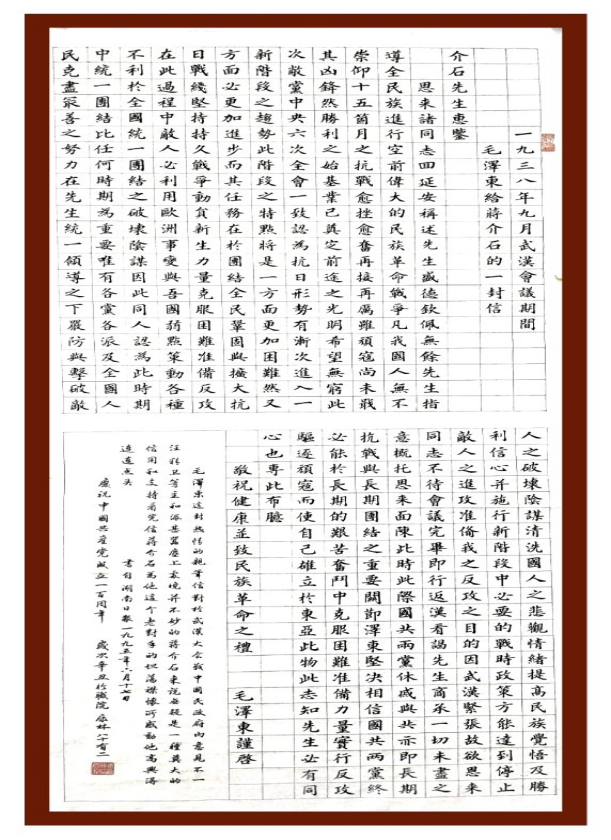 一九三八年九月武漢會議期間
毛澤東給蔣介石的一封信
介石先生惠鑒
恩来諸同志回延安稱述先生盛德欽佩無餘先生指
導全民族進行空前偉大的民族革命戰爭凡我國人無不
崇仰十五箇月之抗戰愈挫愈奮再接再厲雖頑寇尚未戢
其凶鋒然勝利之始基業已奠定前途之光明希望無窮此
次敝黨中央六次全會一致認為抗日形勢有漸次進入一
新階段之趨勢此階段之特點將是一方面更加困難然又
方面必更加進步而其任務在於團結全民鞏固與擴大抗
日戰綫堅持持久戰爭動員新生力量克服困難准备反攻
在此過程中敵人必利用歐洲事變與吾國弱點策動各種
不利於全國統一團結之破壞陰謀因此同人認為此時期
中統一團結比任何時期為重要唯有各黨各派及全國人
民克盡最善之努力在先生統一領導之下嚴防與擊破敵
人之破壞陰謀清洗國人之悲觀情緒提高民族覺悟及勝
利信心并施行新階段中必要的戰時政策方能達到停止
敵人之進攻准备我之反攻之目的因武漢緊張故欲恩来
同志不待會議完畢即行返漢看謁先生商承一切未盡之
意概托恩来面陳此時此際國共兩黨休戚與共亦即長期
抗戰與長期團结之重要關節澤東堅决相信國共兩黨終
必能於長期的艱苦奮鬥中克服困難准備力量實行反攻
驅逐頑寇而使自己確立於東亞此物此志知先生必有同
心也專此布臆
敬祝健康並致民族革命之禮　毛澤東謹啓
毛澤東這封熱情的親筆信對於武漢大會戰中國民政府内意見不一
汪精卫等主和派甚囂塵上處境并不妙的蒋介石来説無疑是一種莫大的
信用和支持看完信蒋介石為他這个老對手的坦荡襟懷所感動他高興得
連連点头
書自湖南日報一九九五年八月十七日
慶祝中國共産党成立一百周年
歲次辛丑於職院
八十有二